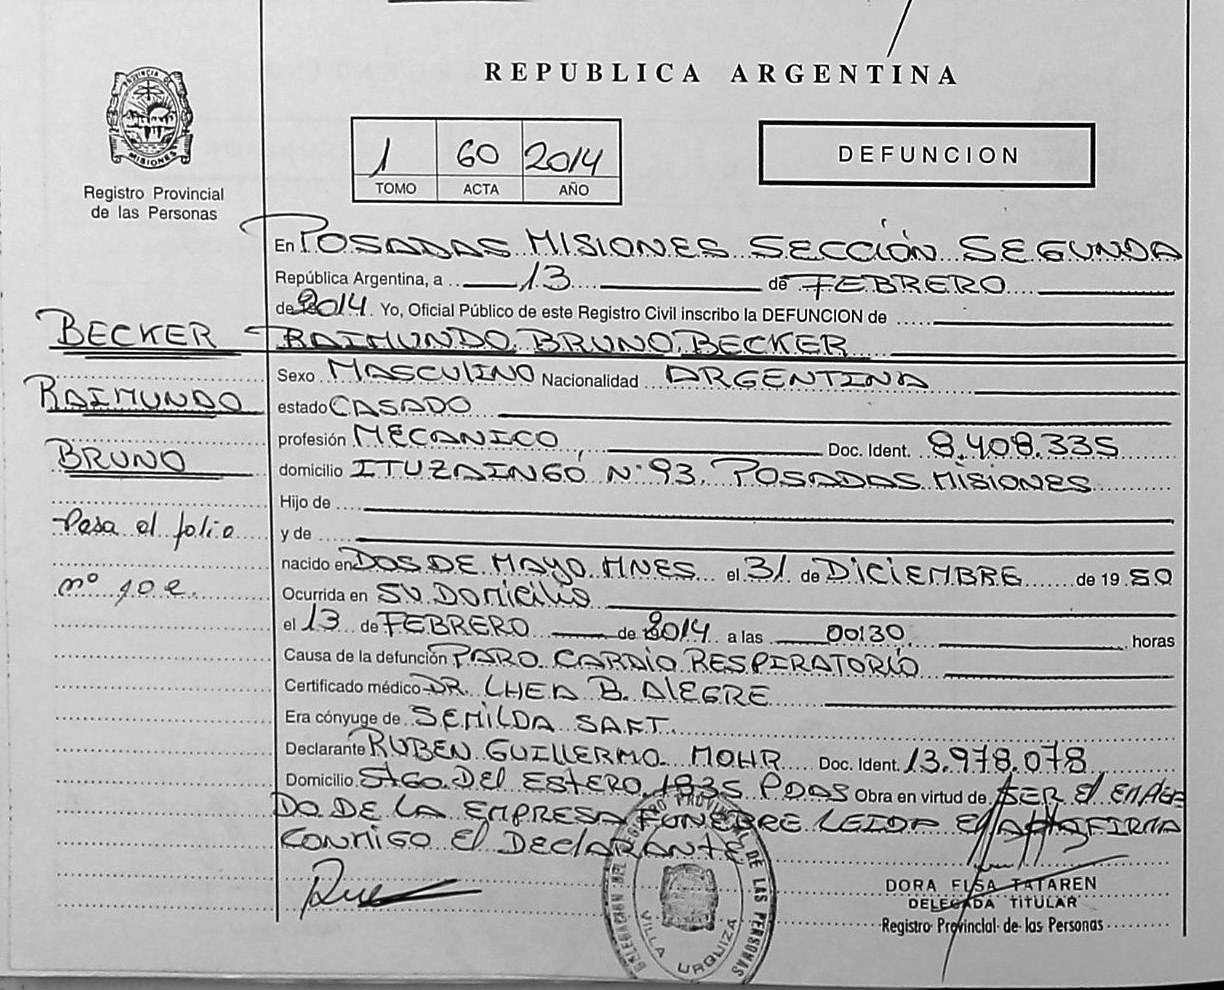 REPUBLICA ARGENTINA
PROVINCIA DE MISIONES
Registro Provincial
de las Personas
1 60 2014
TOMO ACTA AÑO
DEFUNCION
En POSADAS MISIONES SECCIÓN SEGUNDA
República Argentina, a 13 de FEBRERO
de 2014. Yo, Oficial Público de este Registro Civil inscribo la DEFUNCION de
RAIMUNDO BRUNO BECKER
Sexo MASCULINO Nacionalidad ARGENTINA
estado CASADO
profesión MECANICO Doc. Ident. 8.408.335
domicilio ITUZAINGÓ Nº 93. POSADAS MISIONES
Hijo de
y de
nacido en DOS DE MAYO MNES el 31 de DICIEMBRE de 1950
Ocurrida en SU DOMICILIO
el 13 de FEBRERO de 2014 a las 00:30 horas
Causa de la defunción PARO CARDIO RESPIRATORIO
Certificado médico DR. LHEA B. ALEGRE
Era cónyuge de SEMILDA SAFT.
Declarante RUBEN GUILLERMO MOHR Doc. Ident. 13.978.078
Domicilio STGO. DEL ESTERO 1935 PDAS Obra en virtud de SER El EMPLEA
DO DE LA EMPRESA FUNEBRE LEIDA El ACTA FIRMA
CONMIGO El DECLARANTE
BECKER
RAIMUNDO
BRUNO
Pasa al folio
nº 102
DELEGACION DEL REGISTRO PROVINCIAL DE LAS PERSONAS
VILLA URQUIZA
DORA ELSA TATAREN
DELEGADA TITULAR
Registro Provincial de las Personas